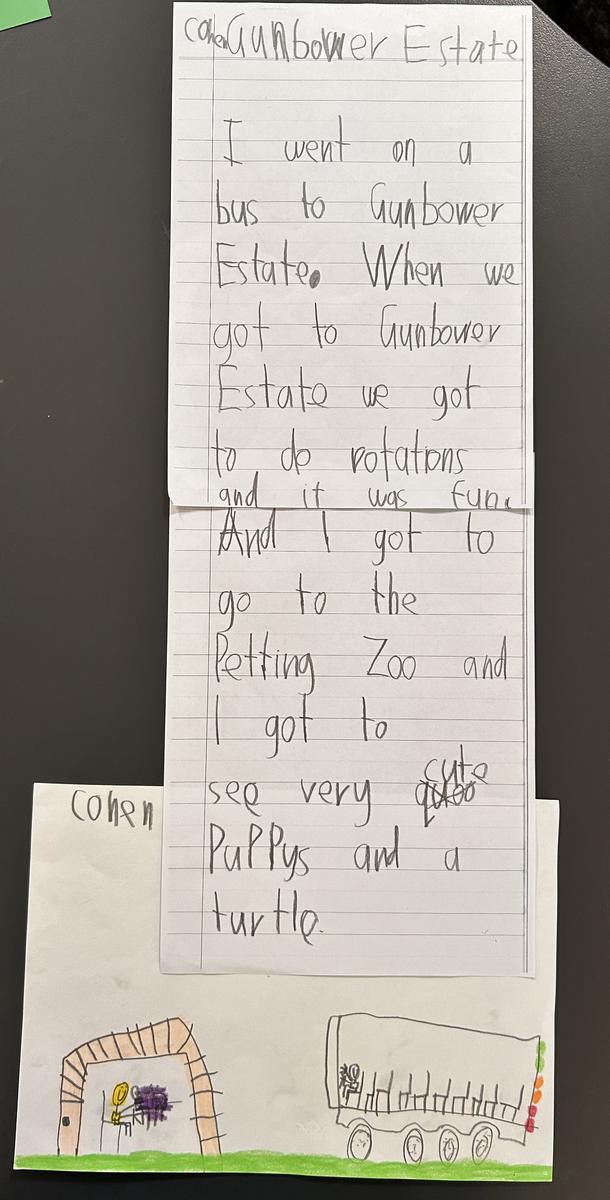 Cohen Gunbower Estate
I went on a
bus to Gunbower
Estate. When we
got to Gunbower
Estate we got
to do rotations
and it was fun.
And I got to
go to the
Petting Zoo and
I got to
see very cute
PuPPys and a
turtle.
Cohen